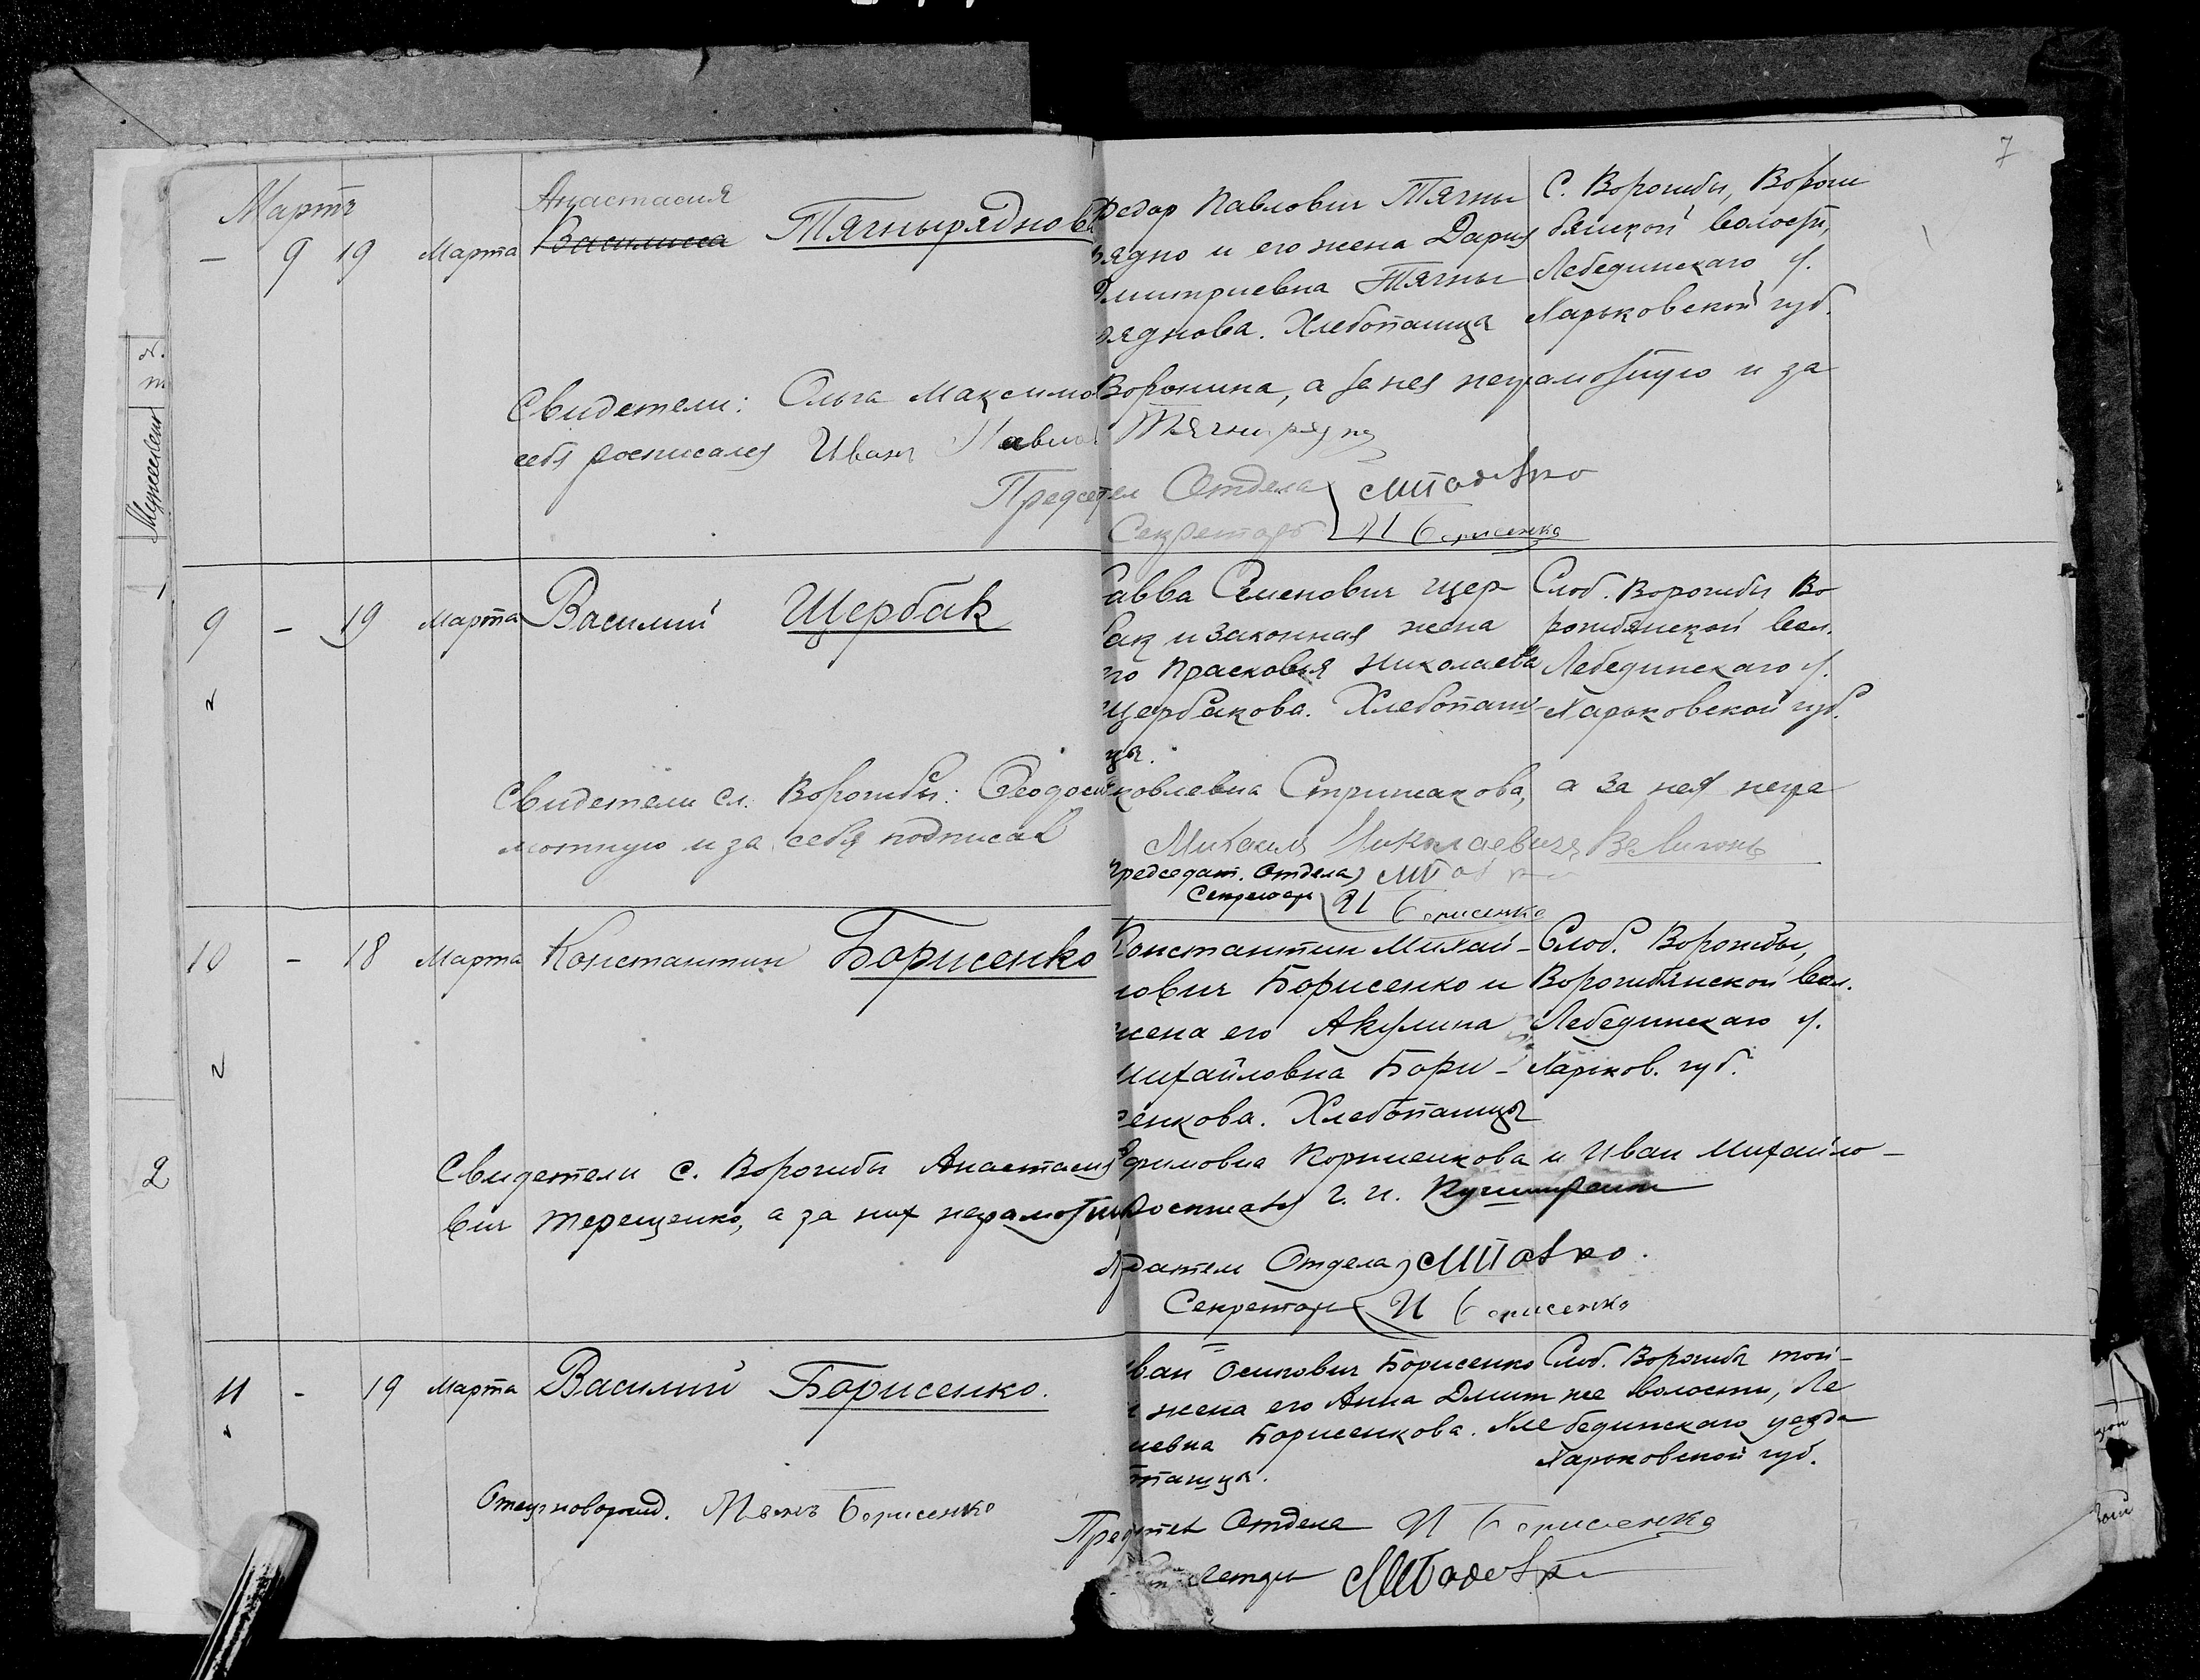 7
Мартъ
— 9 19 Марта
Анастасия
Василиса Тягнырядно
Федор Павлович Тягны
рядно и его жена Дария
Дмитриевна Тягны
ряднова. Хлебопашца
С. Ворожбы, Ворож
бянской волости,
Лебединскаго у.
Харьковской губ.
Свидетели: Ольга Максимо Воронина, а за нея неграмотную и за
себя росписался Иван Павло Тягнирядно
Председ тел Отдела
Секретарь И Борисенко
9 — 19 Марта Василий Щербак
Савва Семенович Щер-
бак и законная жена
его Прасковья Николаева
Щербакова. Хлебопаш-
цы.
Слоб. Ворожбы Во
рожбянской вол.
Лебединскаго у.
Харьковской губ.
Свидетели сл. Ворожбы: Феодосия Яковлевна Стрижакова, а за нея негра
мотную и за себя подписал Михаил Николаевичъ
Председат. Отдела
Секретарь И Борисенко
10 — 18 Марта Константин Борисенко
Константин Михай-
лович Борисенко и
жена его Акулина
Михайловна Бори-
сенкова. Хлебопашцы
Слоб. Ворожбы,
Ворожбянской вол.
Лебединскаго у.
Харьков. губ.
Свидетели с. Ворожбы Анастасия Ефимовна и Иван Михайло-
вич Терещенко, а за них неграмотных
Отдела
Секретарь И Борисенко
11 - 19 Марта Василий Борисенко.
Иван Осипович Борисенко
и жена его Анна Дмит
риевна Борисенкова. Хле
бопашцы.
Слоб. Ворожбы той-
же волости, Ле
бединскаго уезда
Харьковской губ.
Отец новорожд. Иванъ Борисенко
Отдела И Борисенко
Мужескаго
2